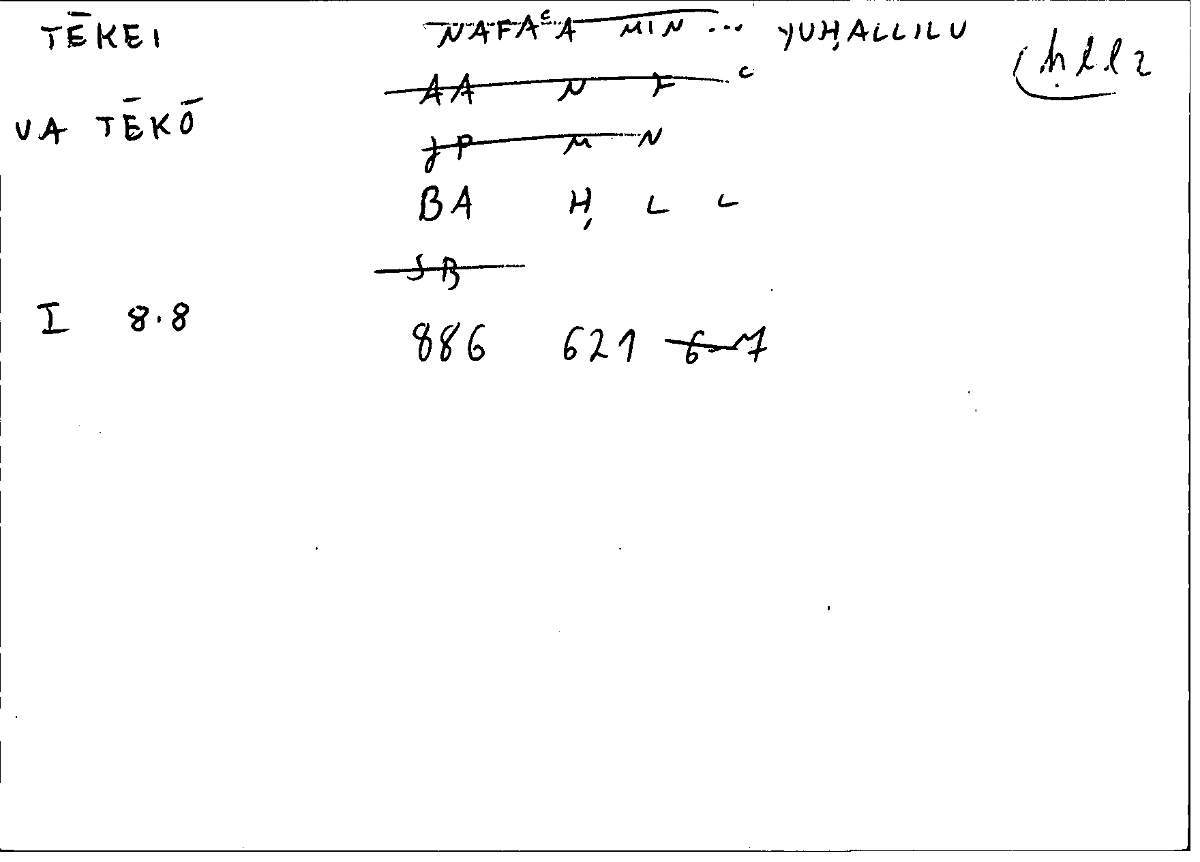 TĒKEI NAFAᶜA MIN ... YUḤALLILU ḥll2
AA N F ᶜ
VA TĒKŌ
JP M N
BA Ḥ L L
JB
I 8.8
886 621 6-7